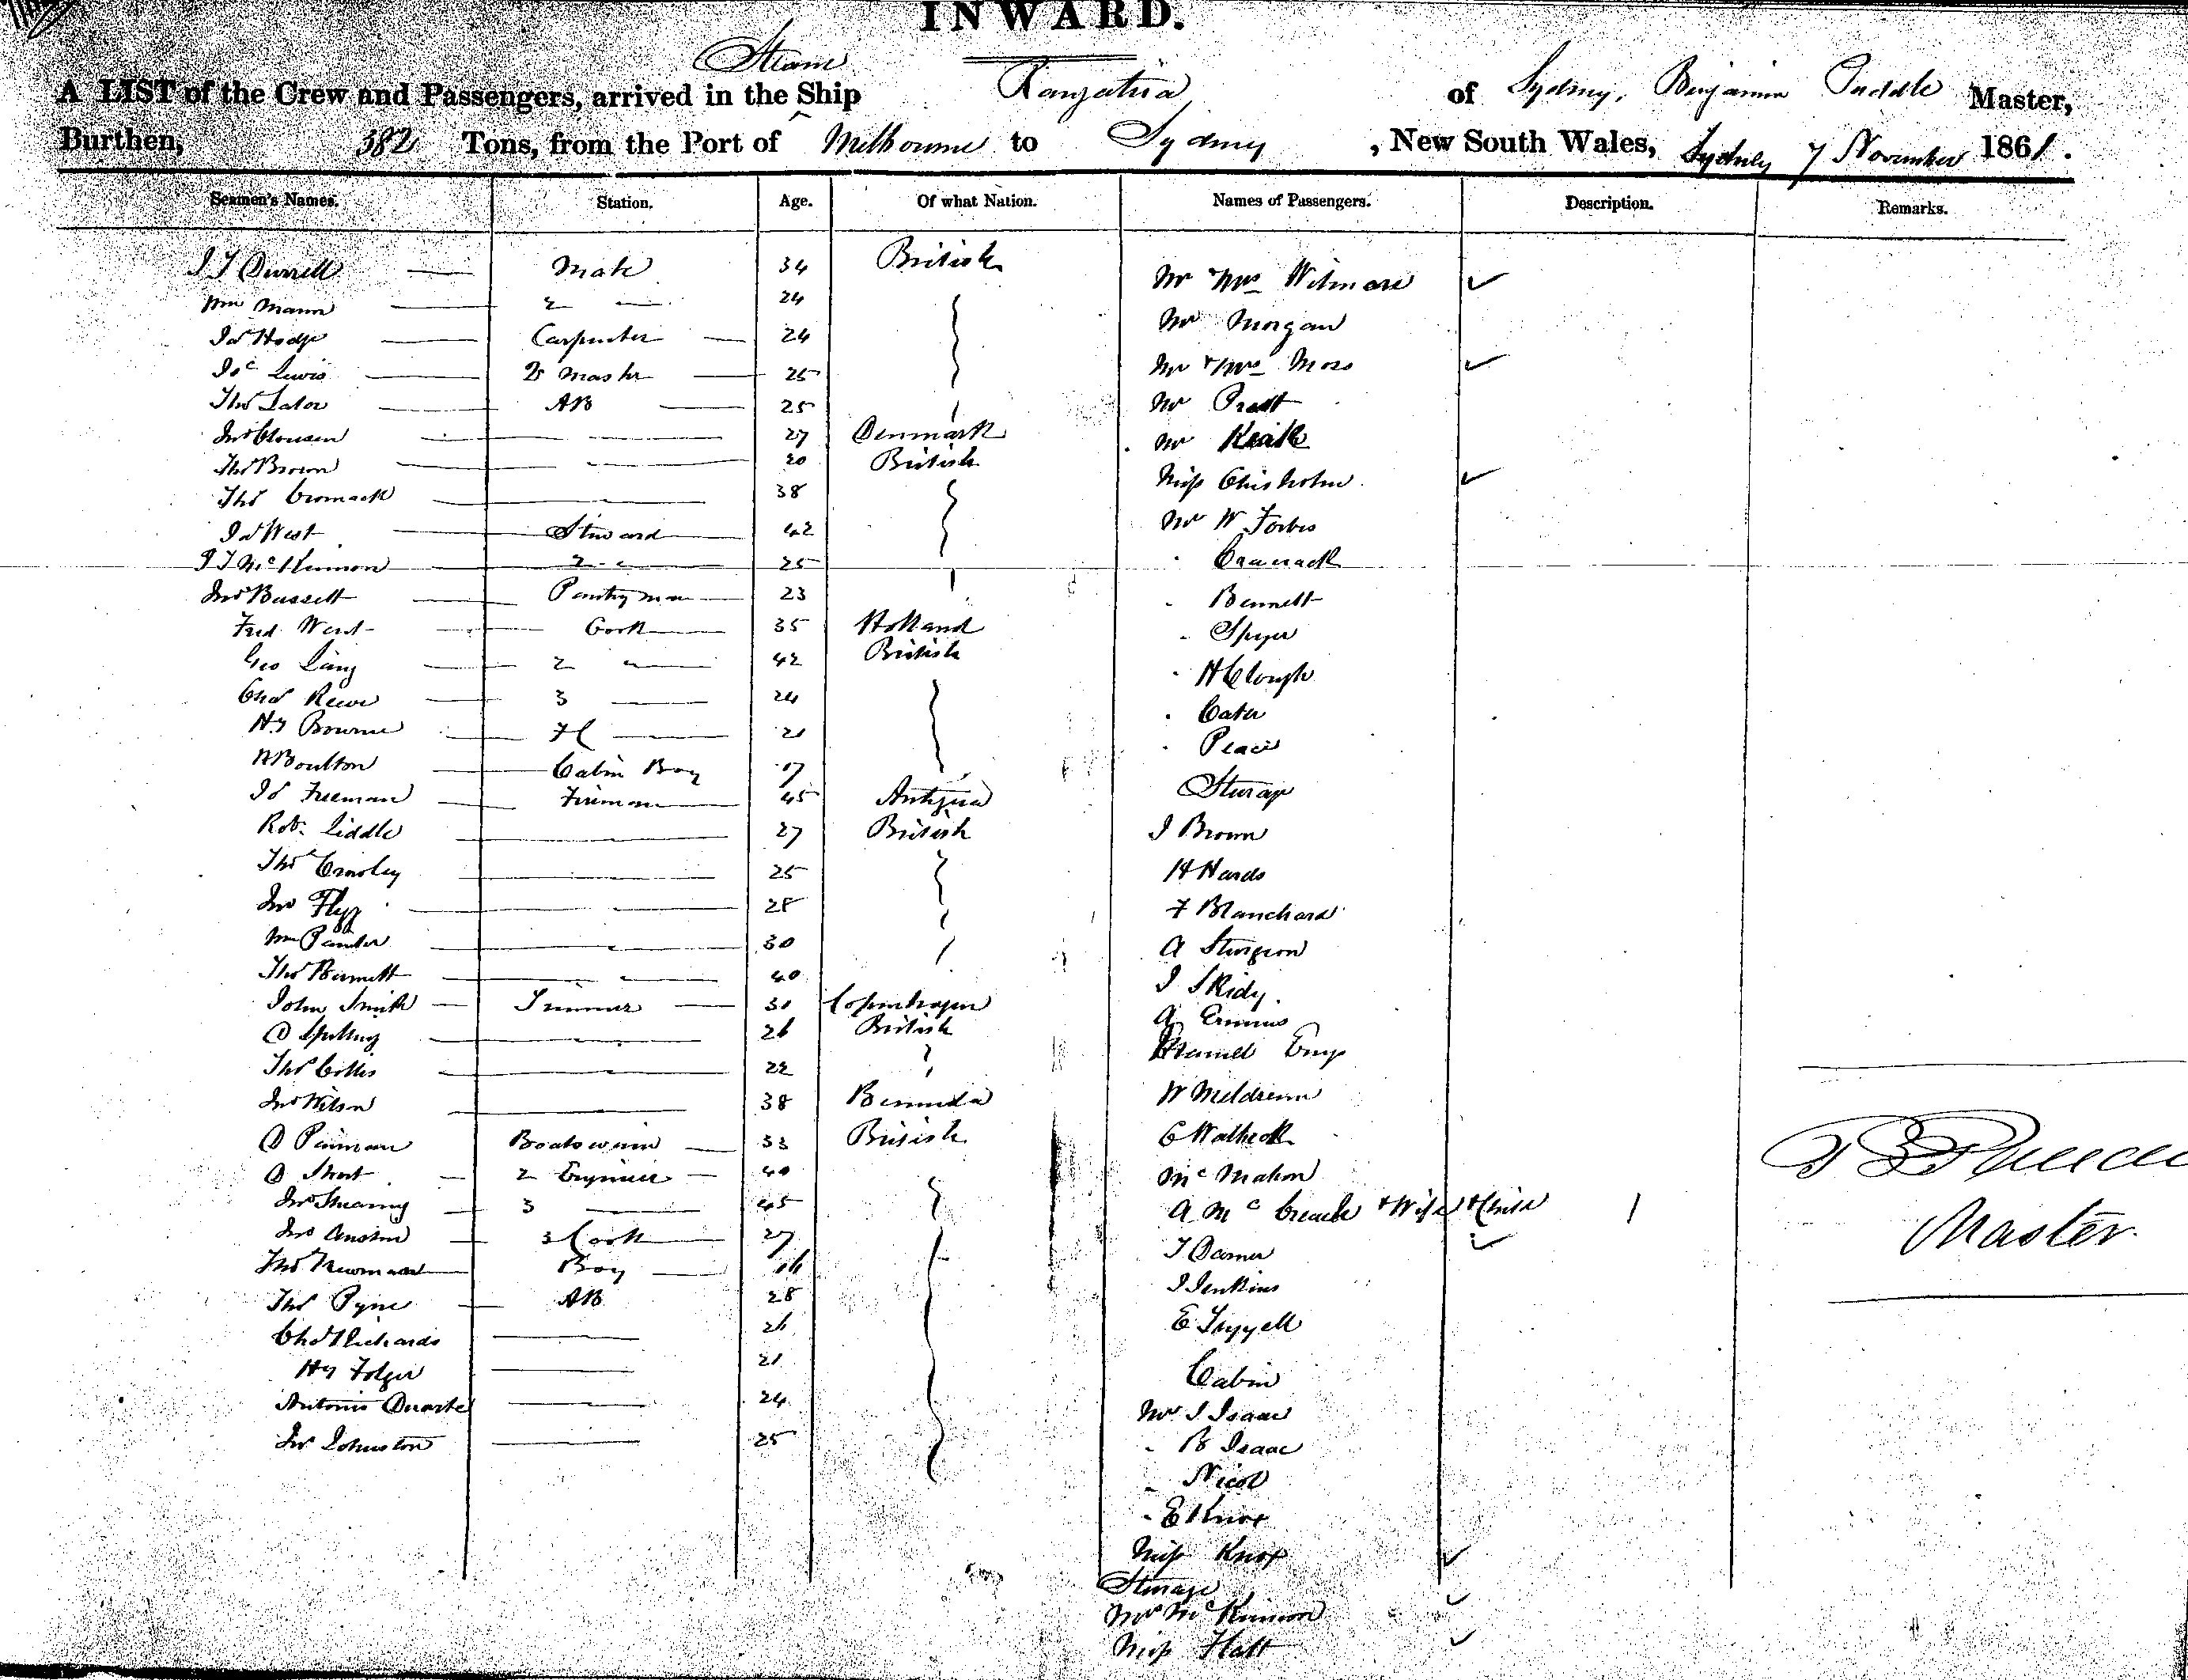 INWARD.
Steam
A LIST of the Crew and Passengers, arrived in the Ship Rangatira of Sydney, Benjamin Paddle Master,
Burthen, 382 Tons, from the Port of Melbourne to Sydney, New South Wales, Sydney 7 November 1861.
Seamen's Names. Station. Age. Of what Nation. Names of Passengers. Description. Remarks.
J T Durrell Mate 34 British Mr & Mrs Wilmore
Wm Mann 2 " 24 Mr Morgan
Jas Hodge Carpenter 24 Mr & Mrs Moss
Jsc Lewis Qr Master 25 Mr Pratt
Thos Lalor AB 25 Mr Keith
Jno Clousen 27 Denmark Miss Chisholm
Thos Brown 20 British Mr W Forbes
Thos Cromack 38
Jas West Steward 42
J T McKinnon 2 " 25 Bennett
Jno Bassett Pantryman 23 Spyer
Fred West Cook 35 Holland H Clough
Geo Lang 2 " 42 British Cater
Chas Reeve 3 24 Peacie
Hy Bourne FC 21 Steerage
A Boulton Cabin Boy 17 J Brown
Js Freeman Fireman 45 Antigua H Hards
Robt Liddle 27 British F Blanchard
Thos Crowley 25 A Sturgeon
Jno Flygg 28 J Skidy.
Wm Painter 30
Thos Bennett 40 W Meldrum
John Smith Trimmer 31 Copenhagen
D Spilling 26 British McMahon
Thos Collis 22 A McCreack & Wife & Child 1
Jno Wilson 38 Bermuda
D Painman Boatswain 33 British J Jenkins
D Short 2 Engineer 40
Jno Shearing 3 45 Cabin
Jno Anston 3 Cook 27 Mr J Isaac
Thos Newman Boy 16 " B Isaac
Thos Pyne AB 28 " Nicol
Chas Richards 26 " E Knox
Hy Folger 21 Miss Knox
Antonio Duarte 24 Steerage
Jno Johnston 25 Mrs McKinnon
Miss Hatt
Master.